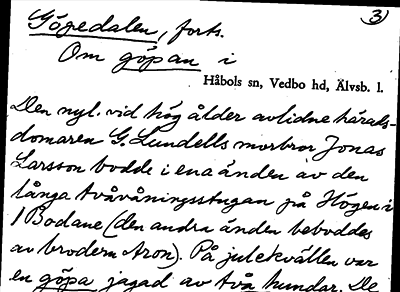 3)
Göpedalen, forts.
Om göpan i
Håbols sn, Vedbo hd, Älvsb. l.
Den nyl. vid hög ålder avlidne härads-
domaren G. Lundells morbror Jonas
Larsson bodde i ena änden av den
långa tvåvåningsstugan på Högen i
1 Bodane (den andra änden beboddes
av brodern Aron). På julekvällen var
en göpa jagad av två hundar. De